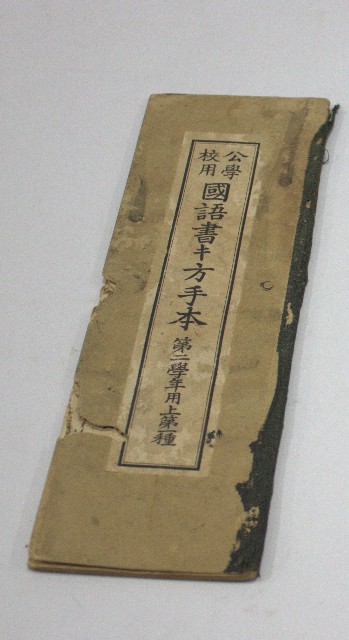 公學校用
國語書キ方手本
第二學年用上第一種